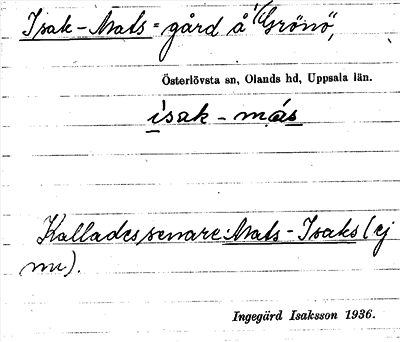 Isak-Mats = gård å "Grönö",
Österlövsta sn, Olands hd, Uppsala län.
isak-más
Kallades senare: Mats-Isaks (ej
nu).
Ingegärd Isaksson 1936.